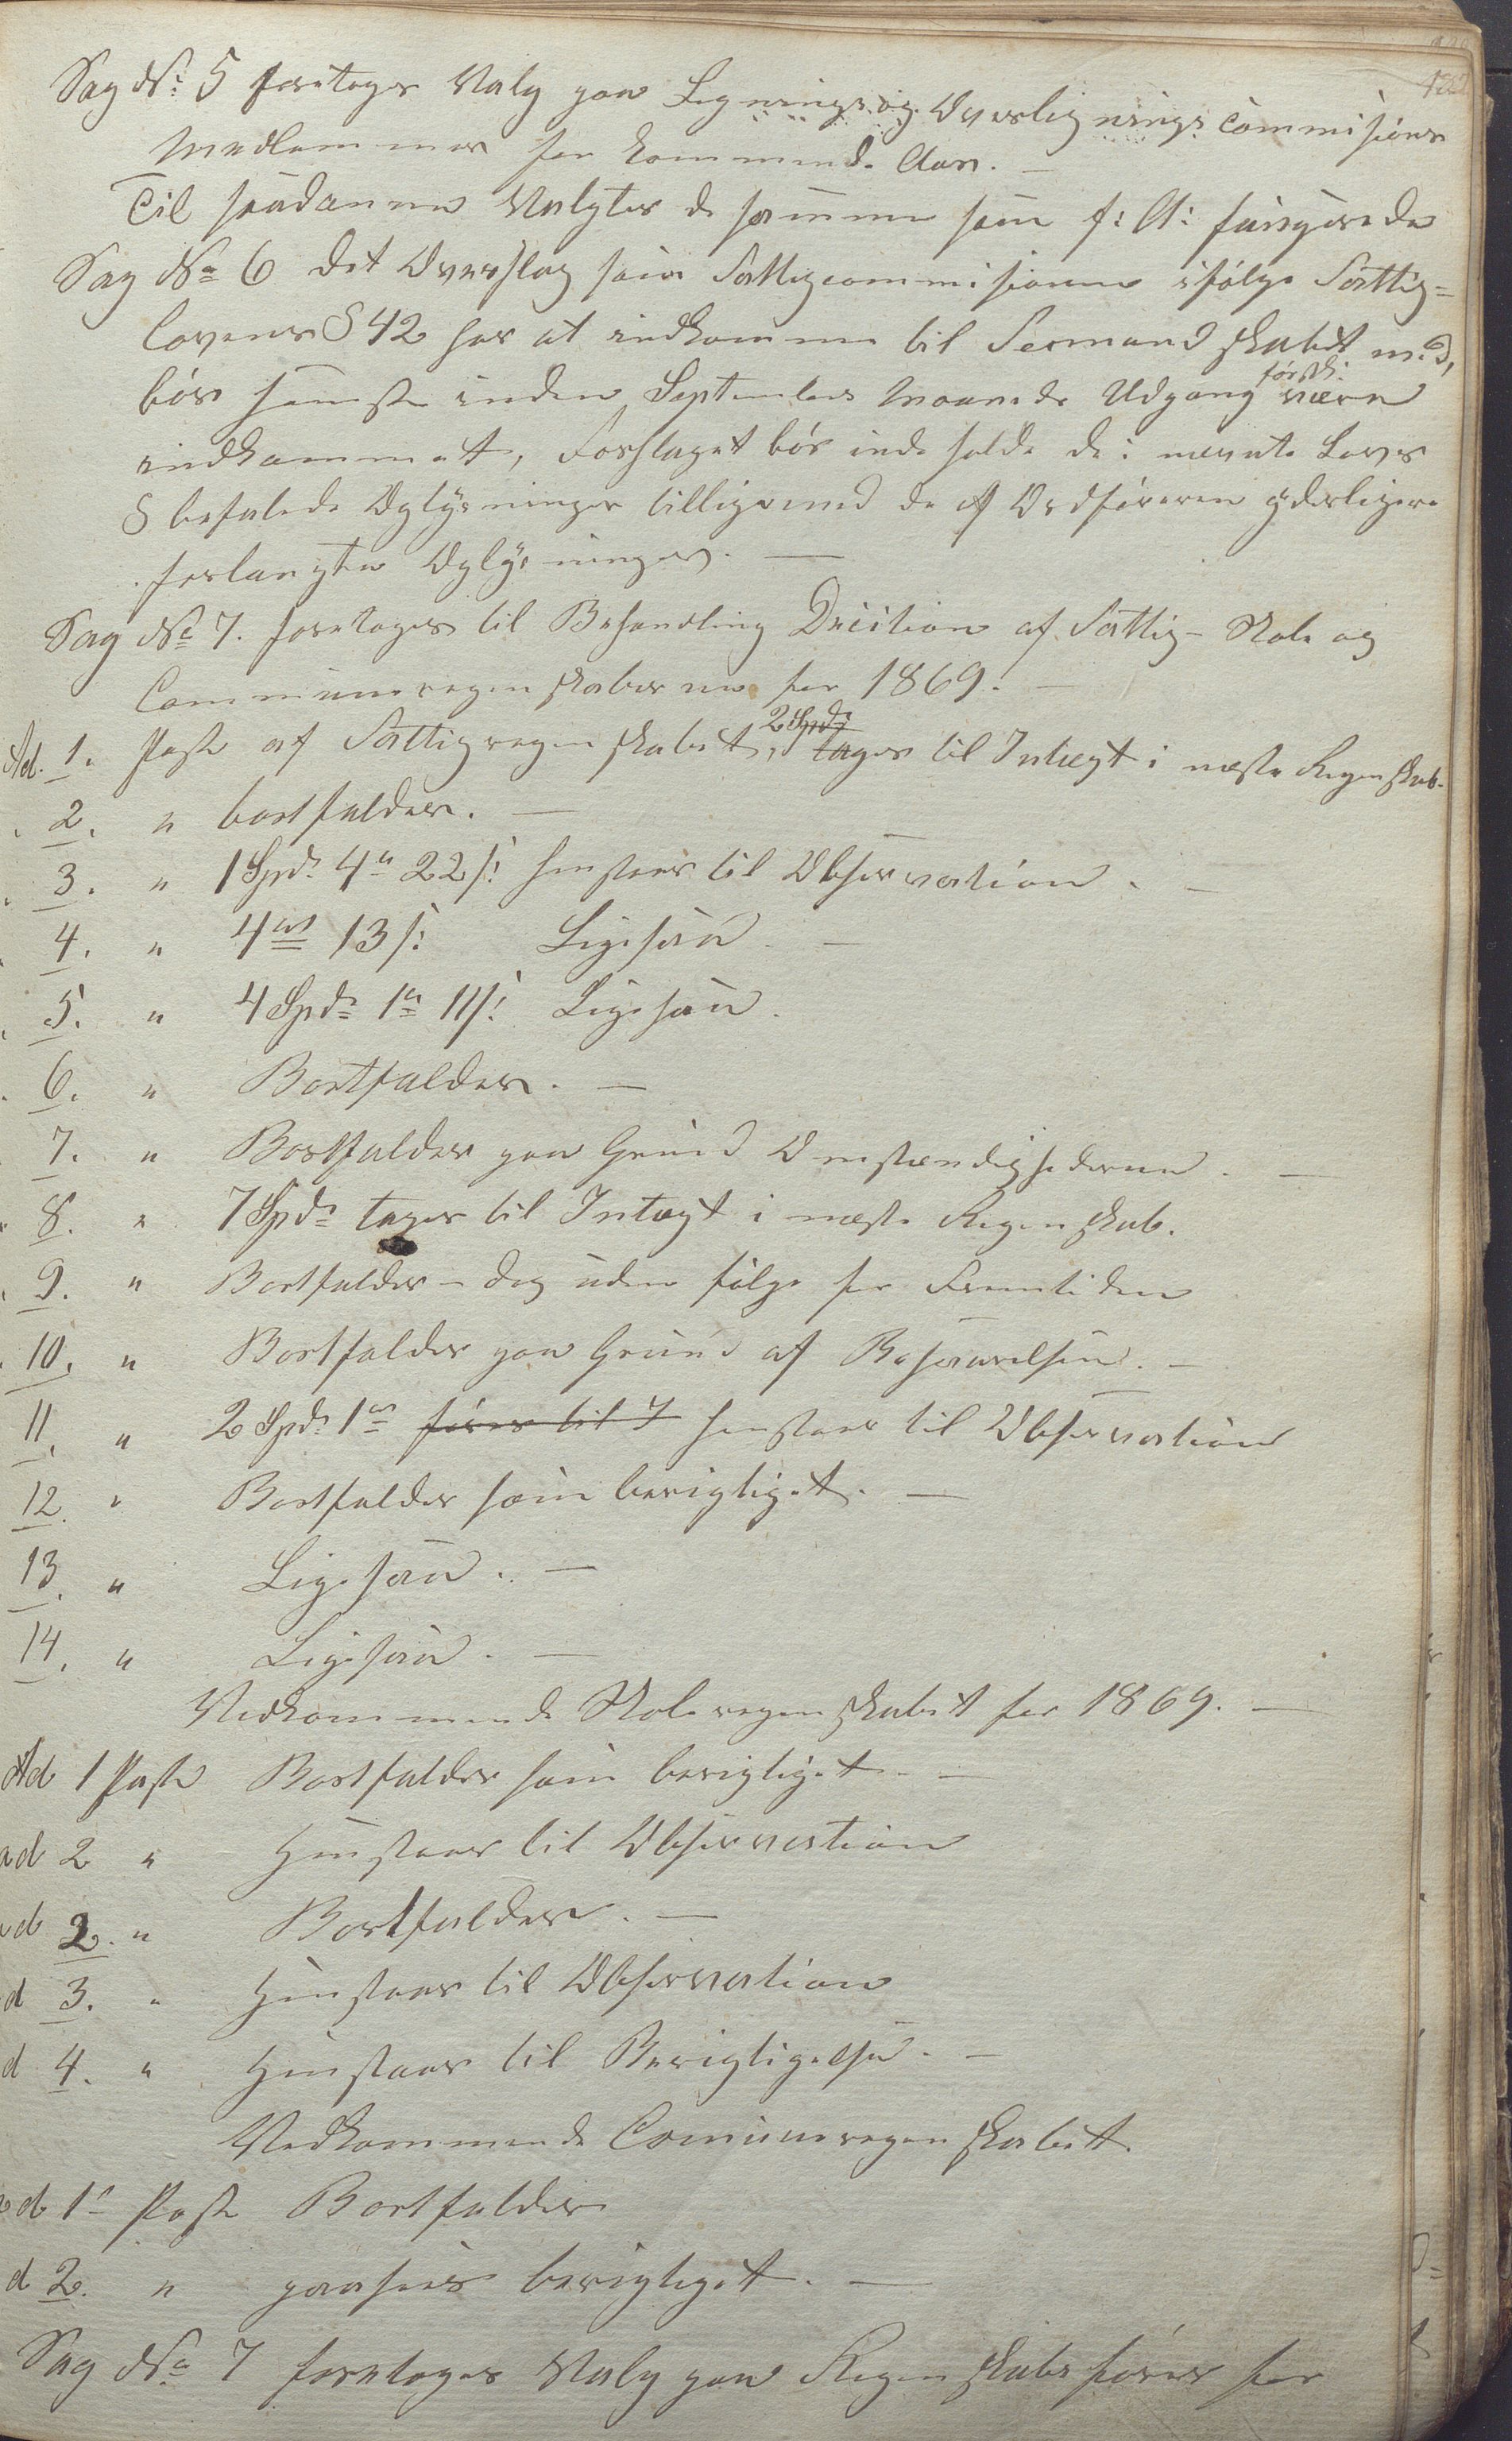 Sag No. 5 foretoges Valg paa Lignings og Overlignings Commissions
Medlemmer for kommende Aar. —
Til saadanne Valgtes de samme som f: A: fungerede
Sag No 6 Det Overslag som Fattigcommissionen ifølge Fattig=
lovens § 42 har at indkomme til Formandskabet med,
bør seneste inden September Maaneds Udgang være
indkommet, Forslaget bør inde holde de i nævnte Lovs
§ befalede Oplysninger tilligemed de af Ordføreren yderligere
forlangte Oplysninger. —
Sag No 7. foretoges til Behandling Decition af Fattig- Skole og
Communeregenskaberne for 1869. —
2 Spd:
Ad. 1. Post af Fattigregenskabet, tages til Intægt i næste Regenskab.
2. " bortfalder. —
3. " 1 Spd. 4 " 22 s: henstaar til Observation. —
4. " 4 " 13 s: Ligesaa. —
5. " 4 Spd. 1 " 11 s: Ligesaa.
6. " Bortfalder. —
7. " Bortfalder paa Grund Omstændighederne. —
8. " 7 Spd. tages til Intægt i næste Regenskab.
9. " Bortfalder – dog uden følge for Fremtiden
10. " Bortfalder paa Grund af Besvarelsen. —
11. " 2 Spd. 1 " føres til I henstaar til Observation
12. " Bortfalder som berigtiget. —
13. " Ligesaa. —
14. " Ligesaa. —
Vedkommende Skoleregenskabet for 1869. —
Ad 1 Post Bortfalder som berigtiget. —
ad 2 " Henstaar til Observation
ad 2. " Bortfalder. —
d 3. " Henstaar til Observation
d 4. " Henstaar til Berigtigelse. —
Vedkommende Comuneregenskabet.
ad 1 Post Bortfalder
d 2. " paasees berigtiget. —
Sag No 7 foretoges Valg paa Regenskabsfører for